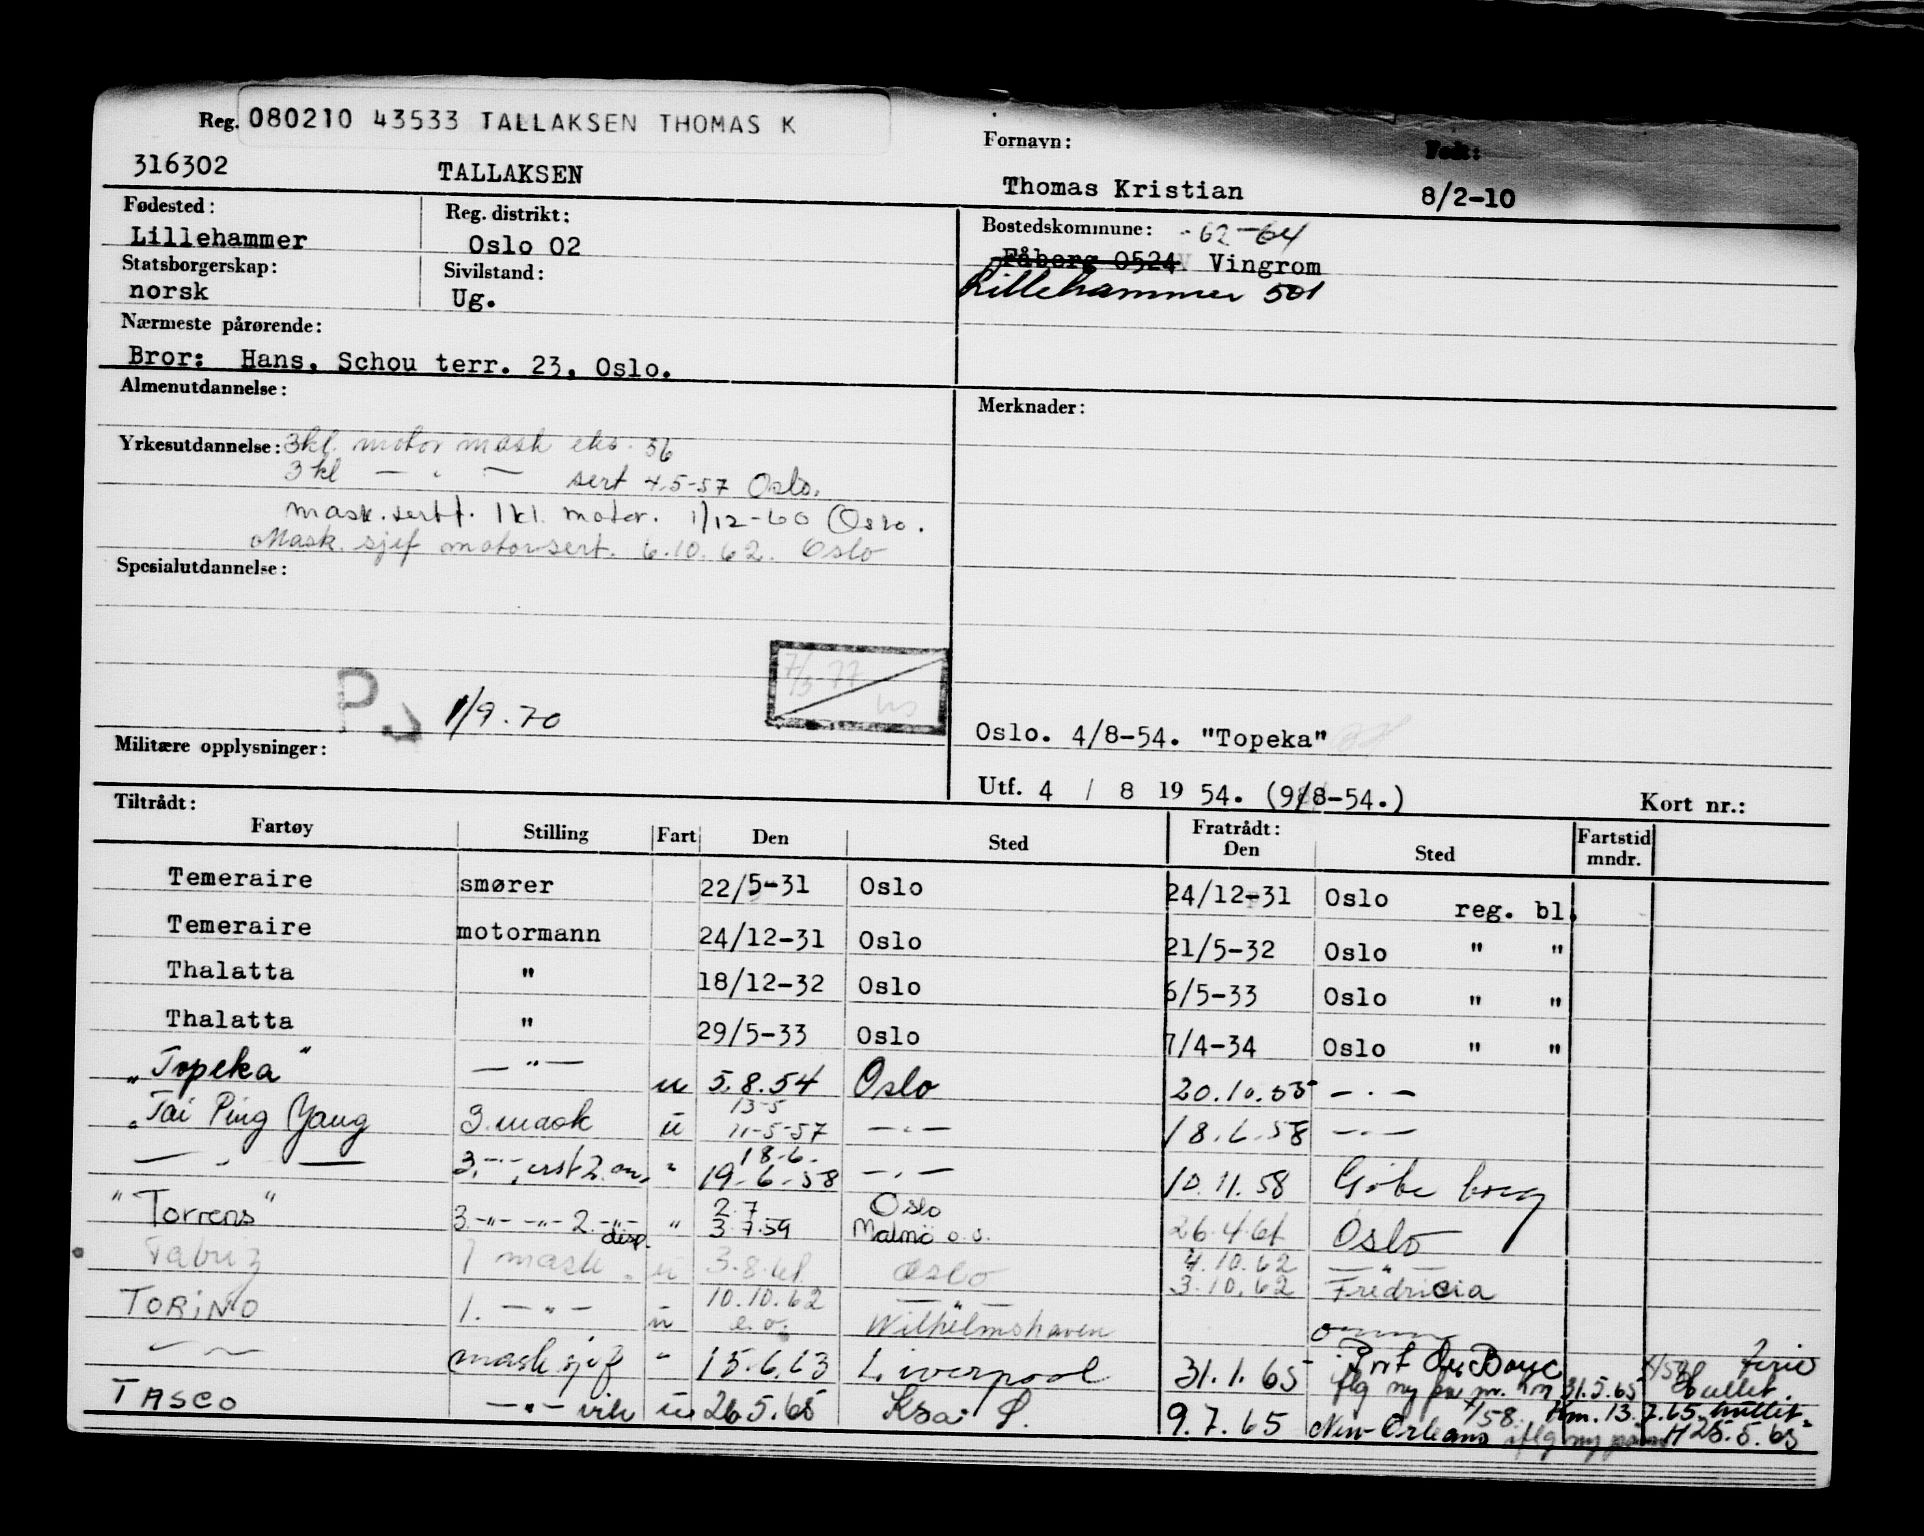 Reg. 080210 43533 TALLAKSEN THOMAS K
316302 TALLAKSEN
Fornavn: Født:
Thomas Kristian 8/2-10
Fødested: Reg. distrikt:
Lillehammer Oslo 02
Statsborgerskap: Sivilstand:
norsk Ug.
Nærmeste pårørende:
Bror: Hans, Schou terr. 23, Oslo.
Bostedskommune: -62-64
Fåberg 0524 Vingrom
Lillehammer 501
Almenutdannelse:
Yrkesutdannelse: 3kl. motor mask eks. 56
3 kl — " — sert 4.5-57 Oslo.
mask.sertf. 1 kl. motor. 1/12-60 Oslo.
Mask. sjef motorsert. 6.10.62. Oslo
Spesialutdannelse:
P. 1/9.70
7/3-77
Militære opplysninger:
Merknader:
Oslo. 4/8-54. "Topeka"
Utf. 4 / 8 19 54. (9/8-54.) Kort nr.:
Tiltrådt: Fratrådt:
Fartøy Stilling Fart Den Sted Den Sted Fartstid mndr.
Temeraire smører 22/5-31 Oslo 24/12-31 Oslo reg. bl.
Temeraire motormann 24/12-31 Oslo 21/5-32 Oslo " "
Thalatta " 18/12-32 Oslo 6/5-33 Oslo " "
Thalatta " 29/5-33 Oslo 7/4-34 Oslo " "
"Topeka" — " — u 5.8.54 Oslo 20.10.55 — " —
"Tai Ping Yang 3. mask u 13-5 11-5-57 — " — 18.6.58 — " —
— " — 3. — " — 2. " 18-6. 19-6-58 — " — 10.11.58 Gøteborg
"Torrens" 3. — " — — " — 2 — " — disp. " 2.7 3.7.59 Oslo Malmö o.s. 26.4.61 Oslo
Tabriz 1 mask. u 3.8.61 Oslo 4.10.62 — " — 3.10.62 Fredricia
TORINO 1. — " — u 10.10.62 e.o. — " — Wilhelmshaven omm
— " — mask sjef " 15.6.63 Liverpool 31.1.65 Port de Bouc 31.5.65
TASCO — " — vik u 26.5.65 9.7.65 New Orleans 7/58. Hm. 13.7.65.
iflg ny H 25.5.65